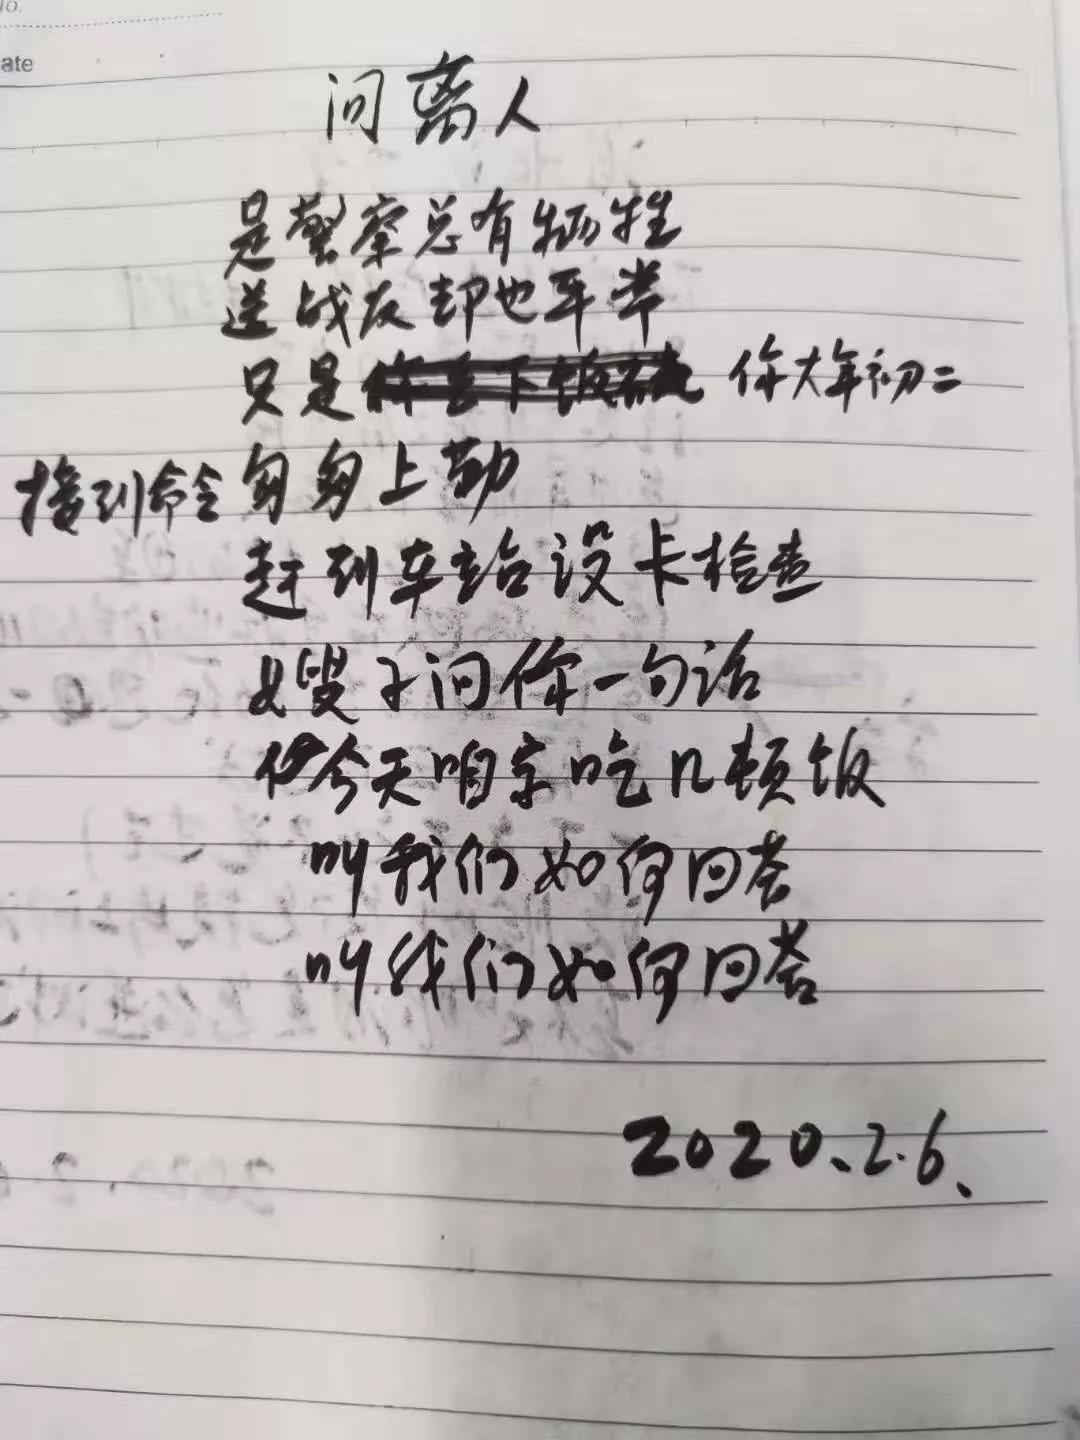 No.
ate
问离人
是警察总有牺牲
送战友却也平常
只是 你大年初二
接到命令匆匆上勤
赶到车站设卡检查
嫂子问你一句话
今天咱家吃几顿饭
叫我们如何回答
叫我们如何回答
2020.2.6.